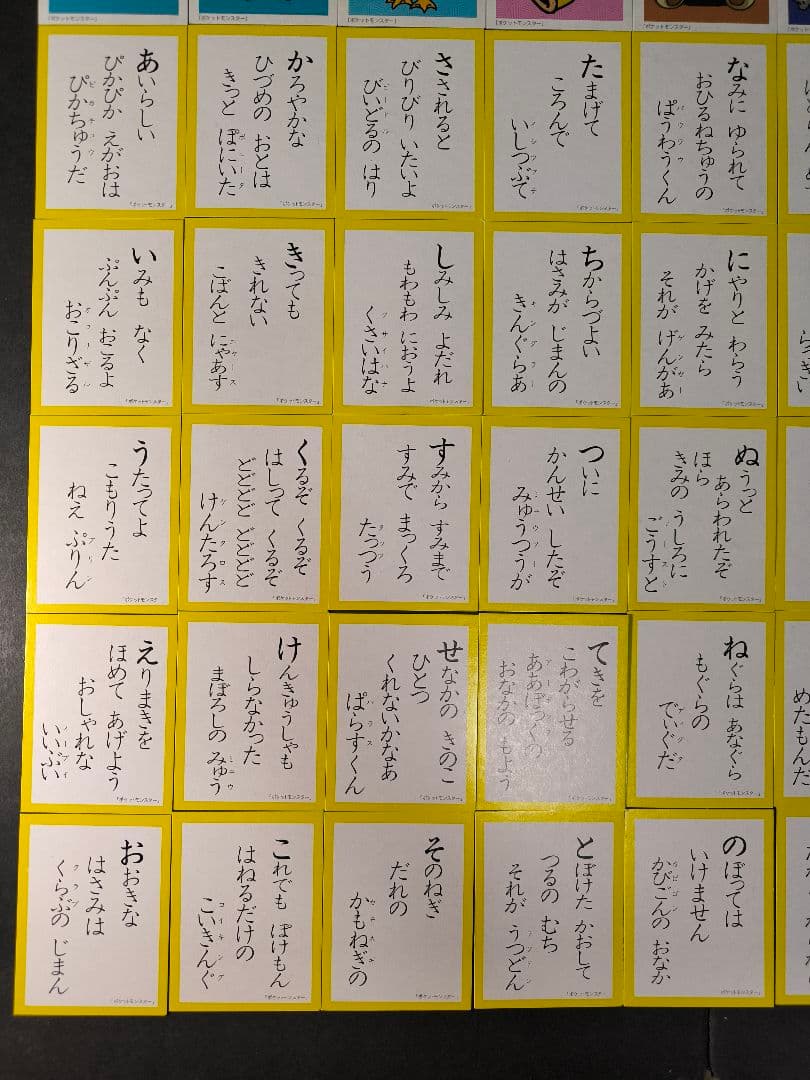 「ポケットモンスター」
「ポケットモンスター」
「ポケットモンスター」
「ポケットモンスター」
「ポケットモンスター」
あいらしい
ぴかぴか えがおは
ぴかちゅうだ
ピカチュウ
「ポケットモンスター」
かろやかな
ひづめの おとは
きっと ぽにいた
ポニータ
「ポケットモンスター」
さされると
びりびり いたいよ
びいどるの はり
ビードル
「ポケットモンスター」
たまげて
ころんで
いしつぶて
イシツブテ
「ポケットモンスター」
なみに ゆられて
おひるねちゅうの
ぱうわうくん
パウワウ
「ポケットモンスター」
いみも なく
ぷんぷん おこるよ
おこりざる
オコリザル
「ポケットモンスター」
きっても
きれない
こばんと にゃあす
ニャース
「ポケットモンスター」
しみしみ よだれ
もわもわ におうよ
くさいはな
クサイハナ
「ポケットモンスター」
ちからづよい
はさみが じまんの
きんぐらあ
キングラー
「ポケットモンスター」
にやりと わらう
かげを みたら
それが げんがあ
ゲンガー
「ポケットモンスター」
うたってよ
こもりうた
ねえ ぷりん
プリン
「ポケットモンスター」
くるぞ くるぞ
はしって くるぞ
どどどど どどどど
けんたろす
ケンタロス
「ポケットモンスター」
すみから すみまで
すみで まっくろ
たっつう
タッツー
「ポケットモンスター」
ついに
かんせい したぞ
みゅうつうが
ミュウツー
「ポケットモンスター」
ぬうっと
あらわれたぞ
ほら
きみの うしろに
ごうすと
ゴースト
「ポケットモンスター」
えりまきを
ほめて あげよう
おしゃれな
いいぶい
イーブイ
「ポケットモンスター」
けんきゅうしゃも
しらなかった
まぼろしの みゅう
ミュウ
「ポケットモンスター」
せなかの きのこ
ひとつ
くれないかなあ
ぱらすくん
パラス
「ポケットモンスター」
てきを
こわがらせる
ああぼっくの
アーボック
おなかの もよう
「ポケットモンスター」
ねぐらは あなぐら
もぐらの
でぃぐだ
ディグダ
「ポケットモンスター」
めたもんだ
おおきな
はさみは
くらぶの じまん
クラブ
「ポケットモンスター」
これでも ぽけもん
はねるだけの
こいきんぐ
コイキング
「ポケットモンスター」
そのねぎ
だれの
かもねぎの
カモネギ
「ポケットモンスター」
とぼけた かおして
つるの むち
それが うつどん
ウツドン
「ポケットモンスター」
のぼっては
いけません
かびごんの おなか
カビゴン
「ポケットモンスター」